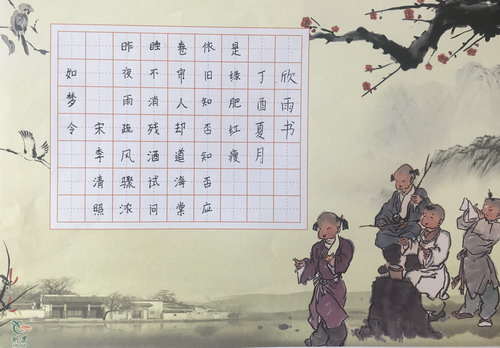 如梦令
宋李清照
昨夜雨疏风骤浓
睡不消残酒试问
卷帘人却道海棠
依旧知否知否应
是绿肥红瘦
丁酉夏月
欣雨书